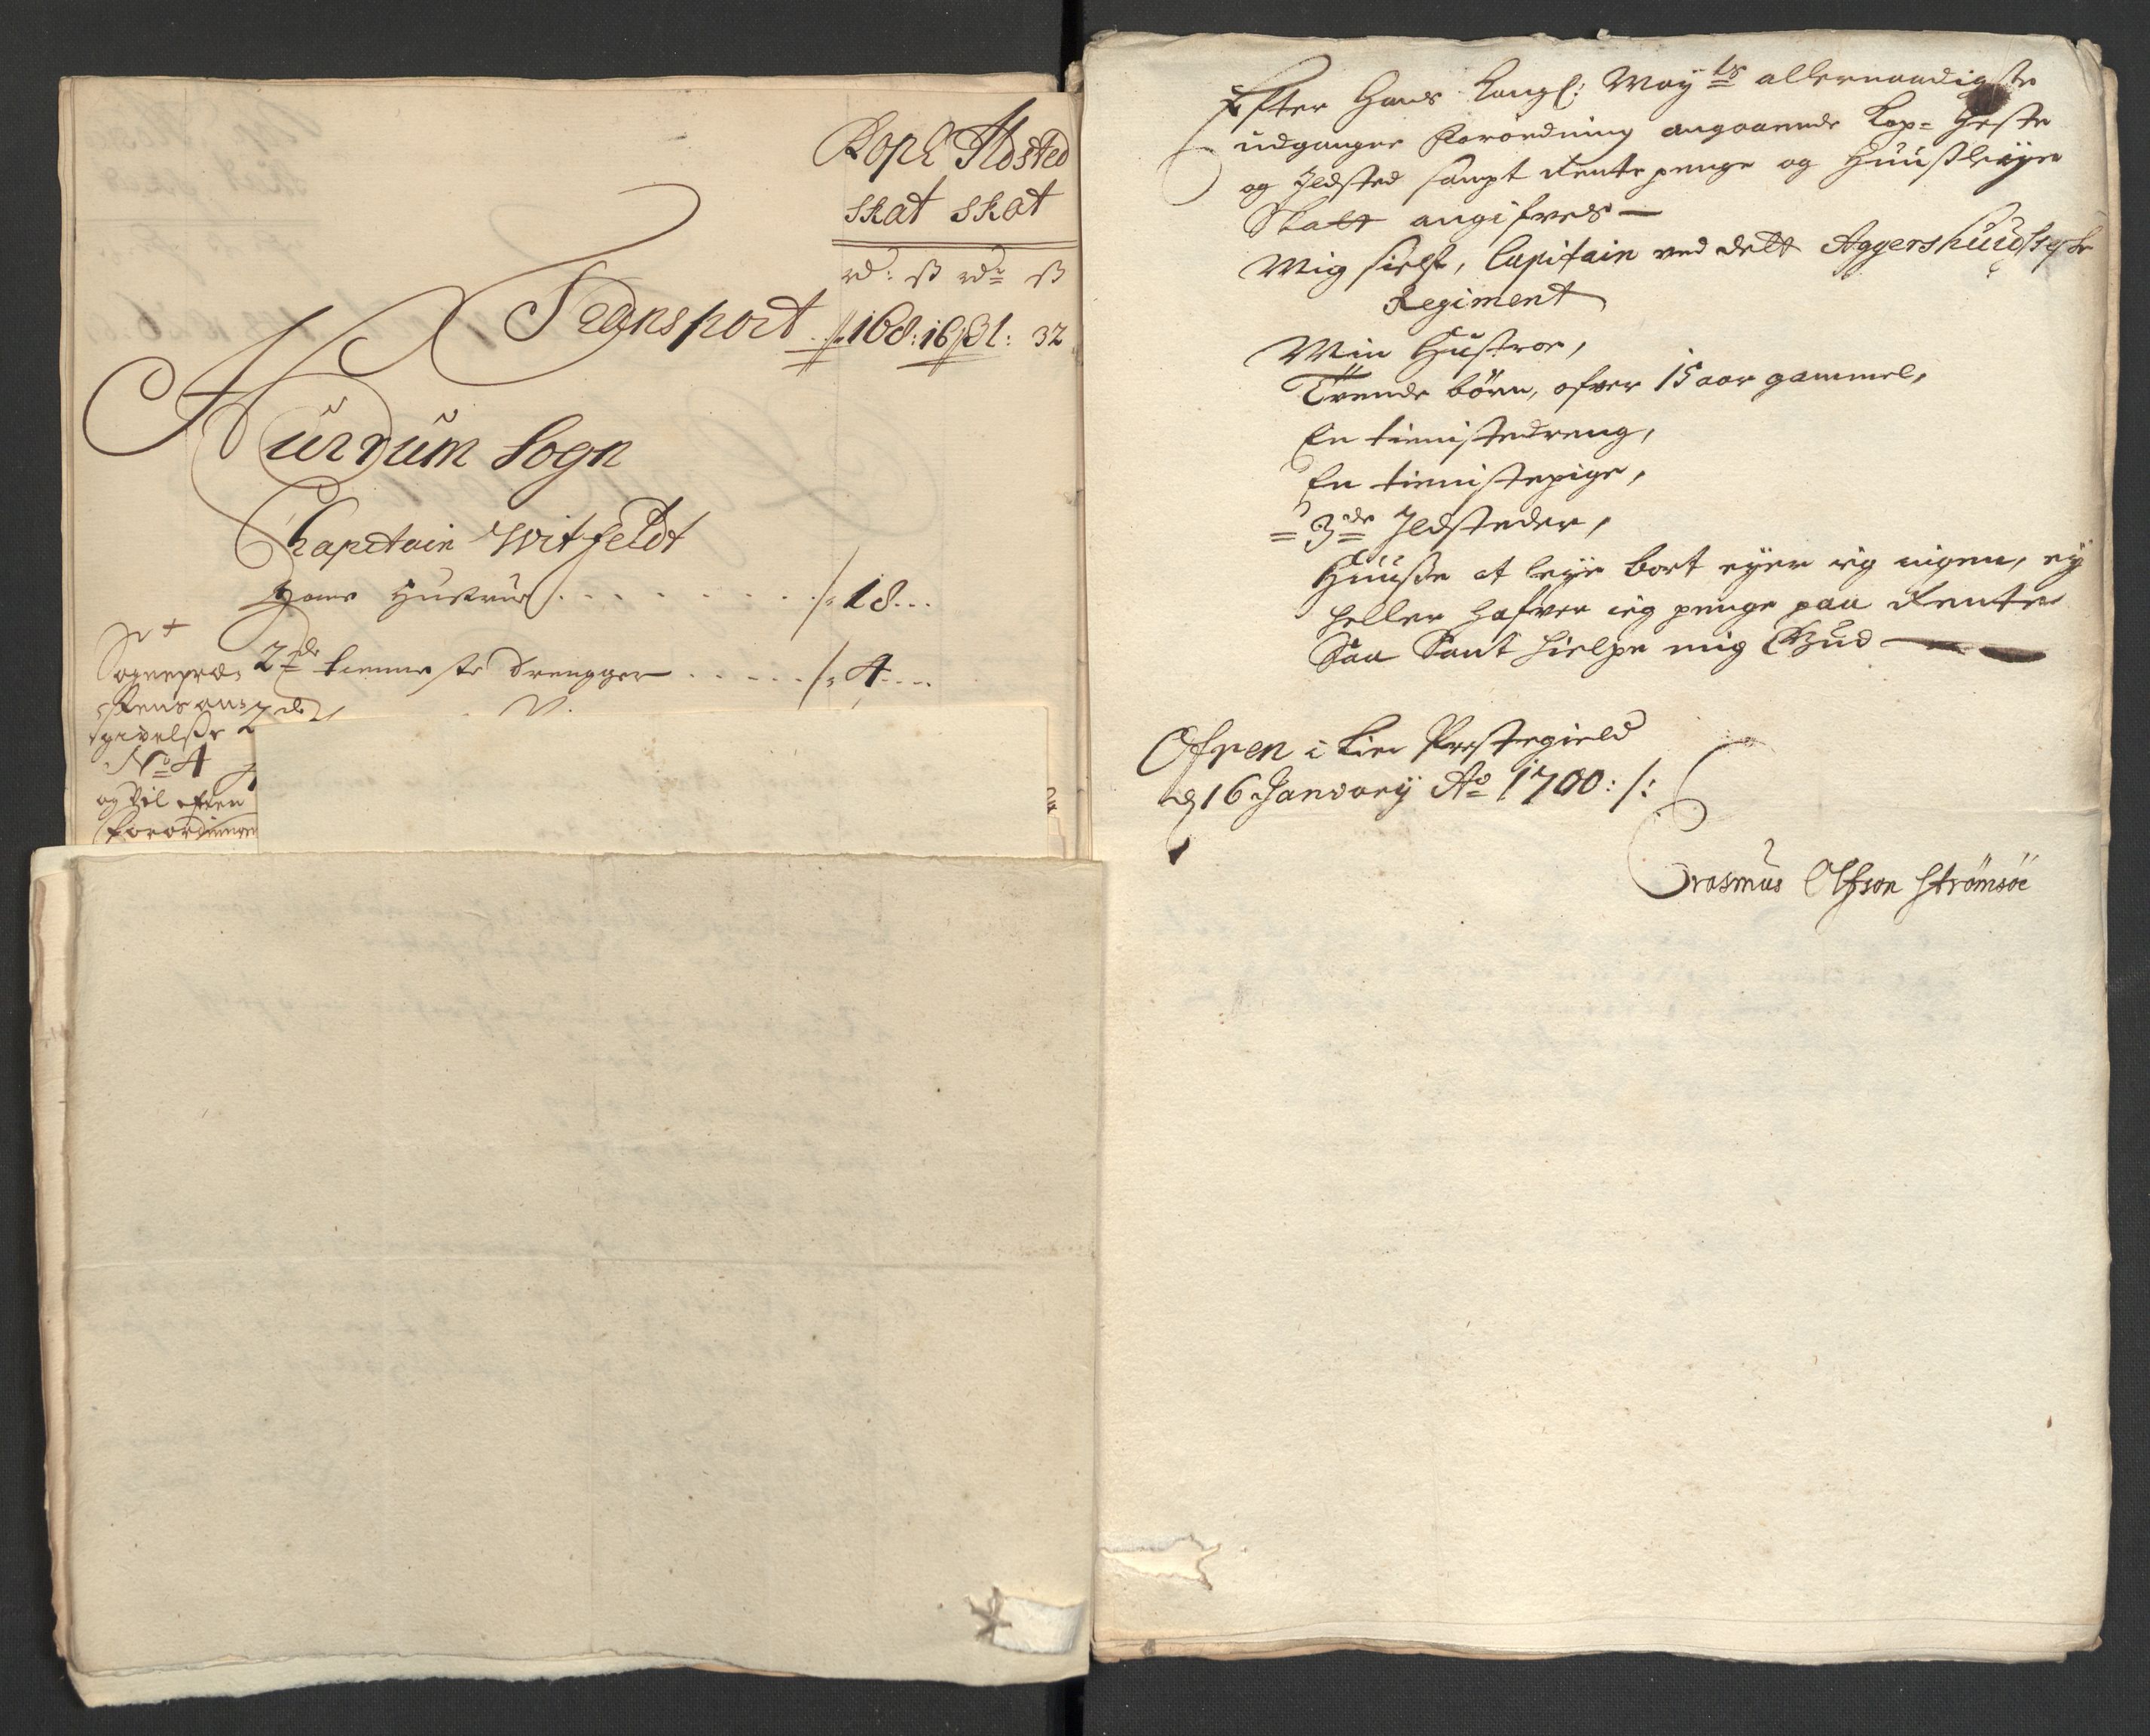 Kop & Ildsted
skat skat
rd: ß rdr ß
Transport .//. 168: 16 // 31: 32
Hurrum Sogn
Chapitain Witfeldt
Hans Hustrue . . . . . . . ./. 18...
2de tienneste drengger . . . . . ./. 4....
Sognepræ-
stens an-
givelsse
No 4
og vil efter
Forordningen
Efter Hans Kongl: Maytts allernaadigste
udgangne Forordning angaaende Kop- Heste
og Ildsted sampt Rente penge og Huusleyer
Skatt angifves —
Mig sielf, Capitain ved dett Aggershuusiske
Regiment
Min Hustroe,
Trende börn, ofver 15 aar gammel,
En tienistedreng,
En tienistepige,
3de Ildsteder,
Huusse at leye bort eyer ieg ingen, ey
heller hafver ieg penge paa Rente
Saa Sant hielpe mig Gud —
Ofven i Lier Præstegield
d 16 January Ao 1700: /:
Erasmus Olfson Strömsöe